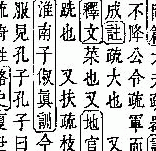 不降公令疏軍而
成註疏大也 又
釋文菜也 又地官
疏也 又扶疏枝
淮南子俶眞訓今
服見孔子孔子曰